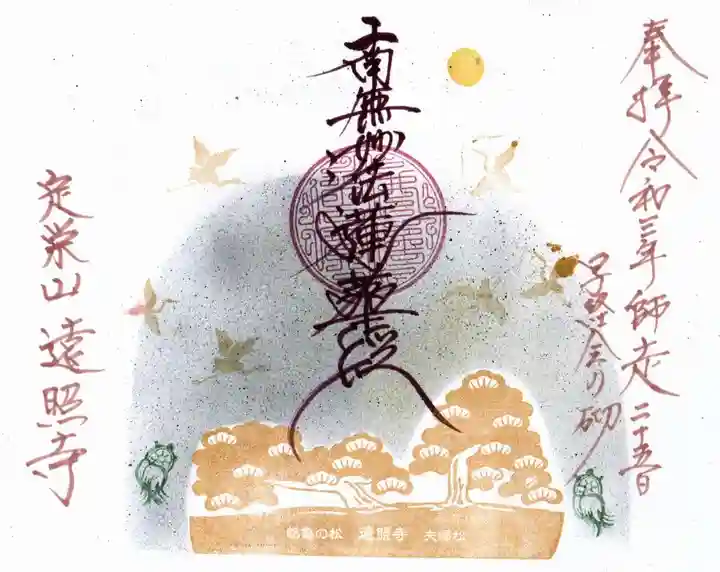 奉拝 令和三年師走二十五日
写経会の砌
南無妙法蓮華経
定栄山 遠照寺
鶴亀の松 遠照寺 夫婦松